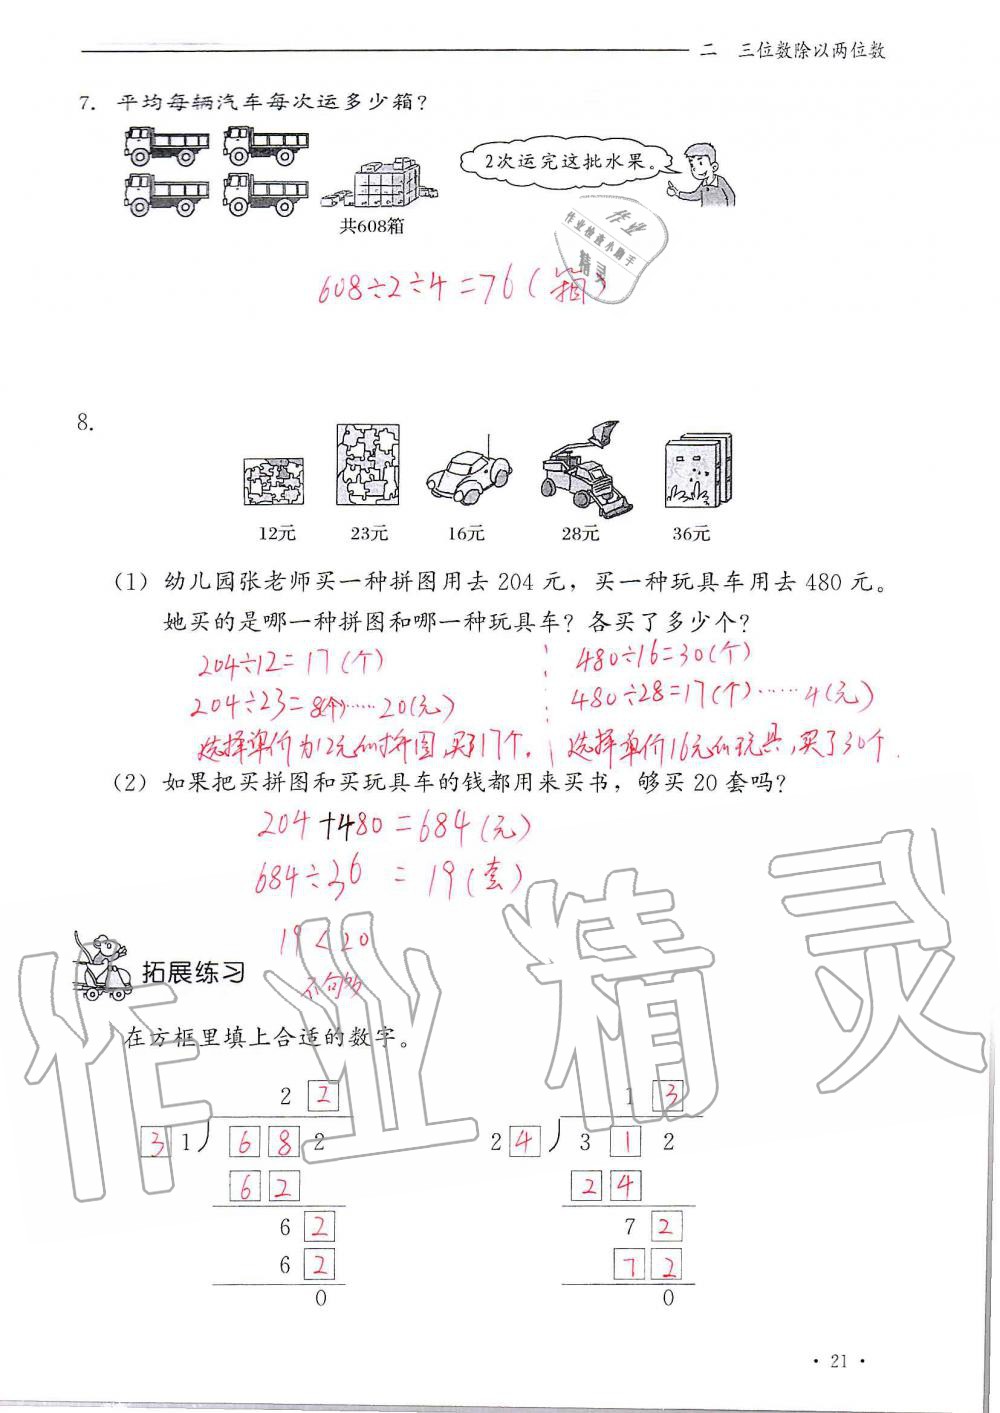 二 三位数除以两位数
7. 平均每辆汽车每次运多少箱？
2次运完这批水果。
共608箱
作业
作业检查小助手
精灵
608÷2÷4=76(箱)
8.
12元 23元 16元 28元 36元
(1) 幼儿园张老师买一种拼图用去 204 元，买一种玩具车用去 480 元。
她买的是哪一种拼图和哪一种玩具车？各买了多少个？
204÷12=17(个) 480÷16=30(个)
204÷23=8(个)……20(元) 480÷28=17(个)……4(元)
选择单价为12元的拼图,买了17个. 选择单价16元的玩具,买了30个.
(2) 如果把买拼图和买玩具车的钱都用来买书，够买 20 套吗？
204+480=684(元)
684÷36=19(套)
19<20
不够
拓展练习
在方框里填上合适的数字。
2 2 1 3
3 1 6 8 2 2 4 3 1 2
6 2 2 4
6 2 7 2
6 2 7 2
0 0
· 21 ·
作业精灵